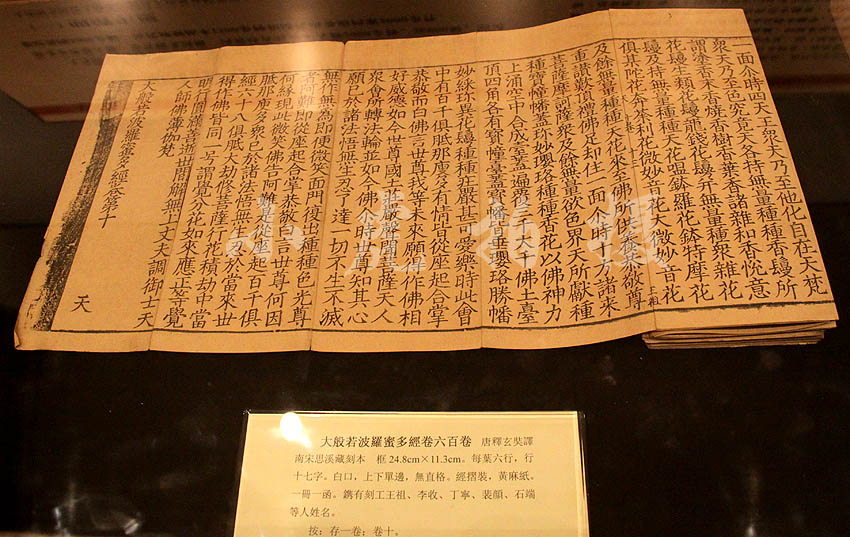 一面尒時四天王衆天乃至他化自在天梵
衆天乃至色究竟天各持無量種種香鬘所
謂塗香末香燒香樹香葉香諸雜和香悅意
花鬘生類花鬘龍錢花鬘并無量種衆雜花
鬘及持無量種種天花嗢鉢羅花鉢特摩花
俱某陀花奔荼利花微妙音花大微妙音花
王祖
及餘無量種種天花來至佛所供養恭敬尊
重讚歎頂禮佛足却住一面尒時十方諸來
菩薩摩訶薩衆及餘無量欲色界天所獻種
種寶幢幡蓋珍妙瓔珞種種香花以佛神力
上涌空中合成臺蓋遍覆三千大千佛土臺
頂四角各有寶幢臺蓋寶幢皆垂瓔珞勝幡
妙綵珍異花鬘種種莊嚴甚可愛樂時此會
中有百千俱胝那庾多有情皆從座起合掌
恭敬而白佛言世尊我等未來願得作佛相
好威德如今世尊國土莊嚴聲聞菩薩天人
衆會所轉法輪並如今佛尒時世尊知其心
願已於諸法悟無生忍了達一切不生不滅
無作無為即便微笑面門復出種種色光尊
者阿難即從座起合掌恭敬白言世尊何因
何緣現此微笑佛告阿難是從座起百千俱
胝那庾多衆已於諸法悟無生忍於當來世
經六十八俱胝大劫修菩薩行花積劫中當
得作佛皆同一号謂覺分花如來應正等覺
明行圓滿善逝世間解無上丈夫調御士天
人師佛薄伽梵
大般若波羅蜜多經卷第十
天
小虎拍摄
大般若波羅蜜多經卷六百卷 唐釋玄奘譯
南宋思溪藏刻本 框24.8cm×11.3cm。每葉六行，行
十七字。白口，上下單邊，無直格。經摺裝，黃麻紙。
一冊一函。鐫有刻工王祖、李收、丁寧、裴顏、石端
等人姓名。
按：存一卷：卷十。